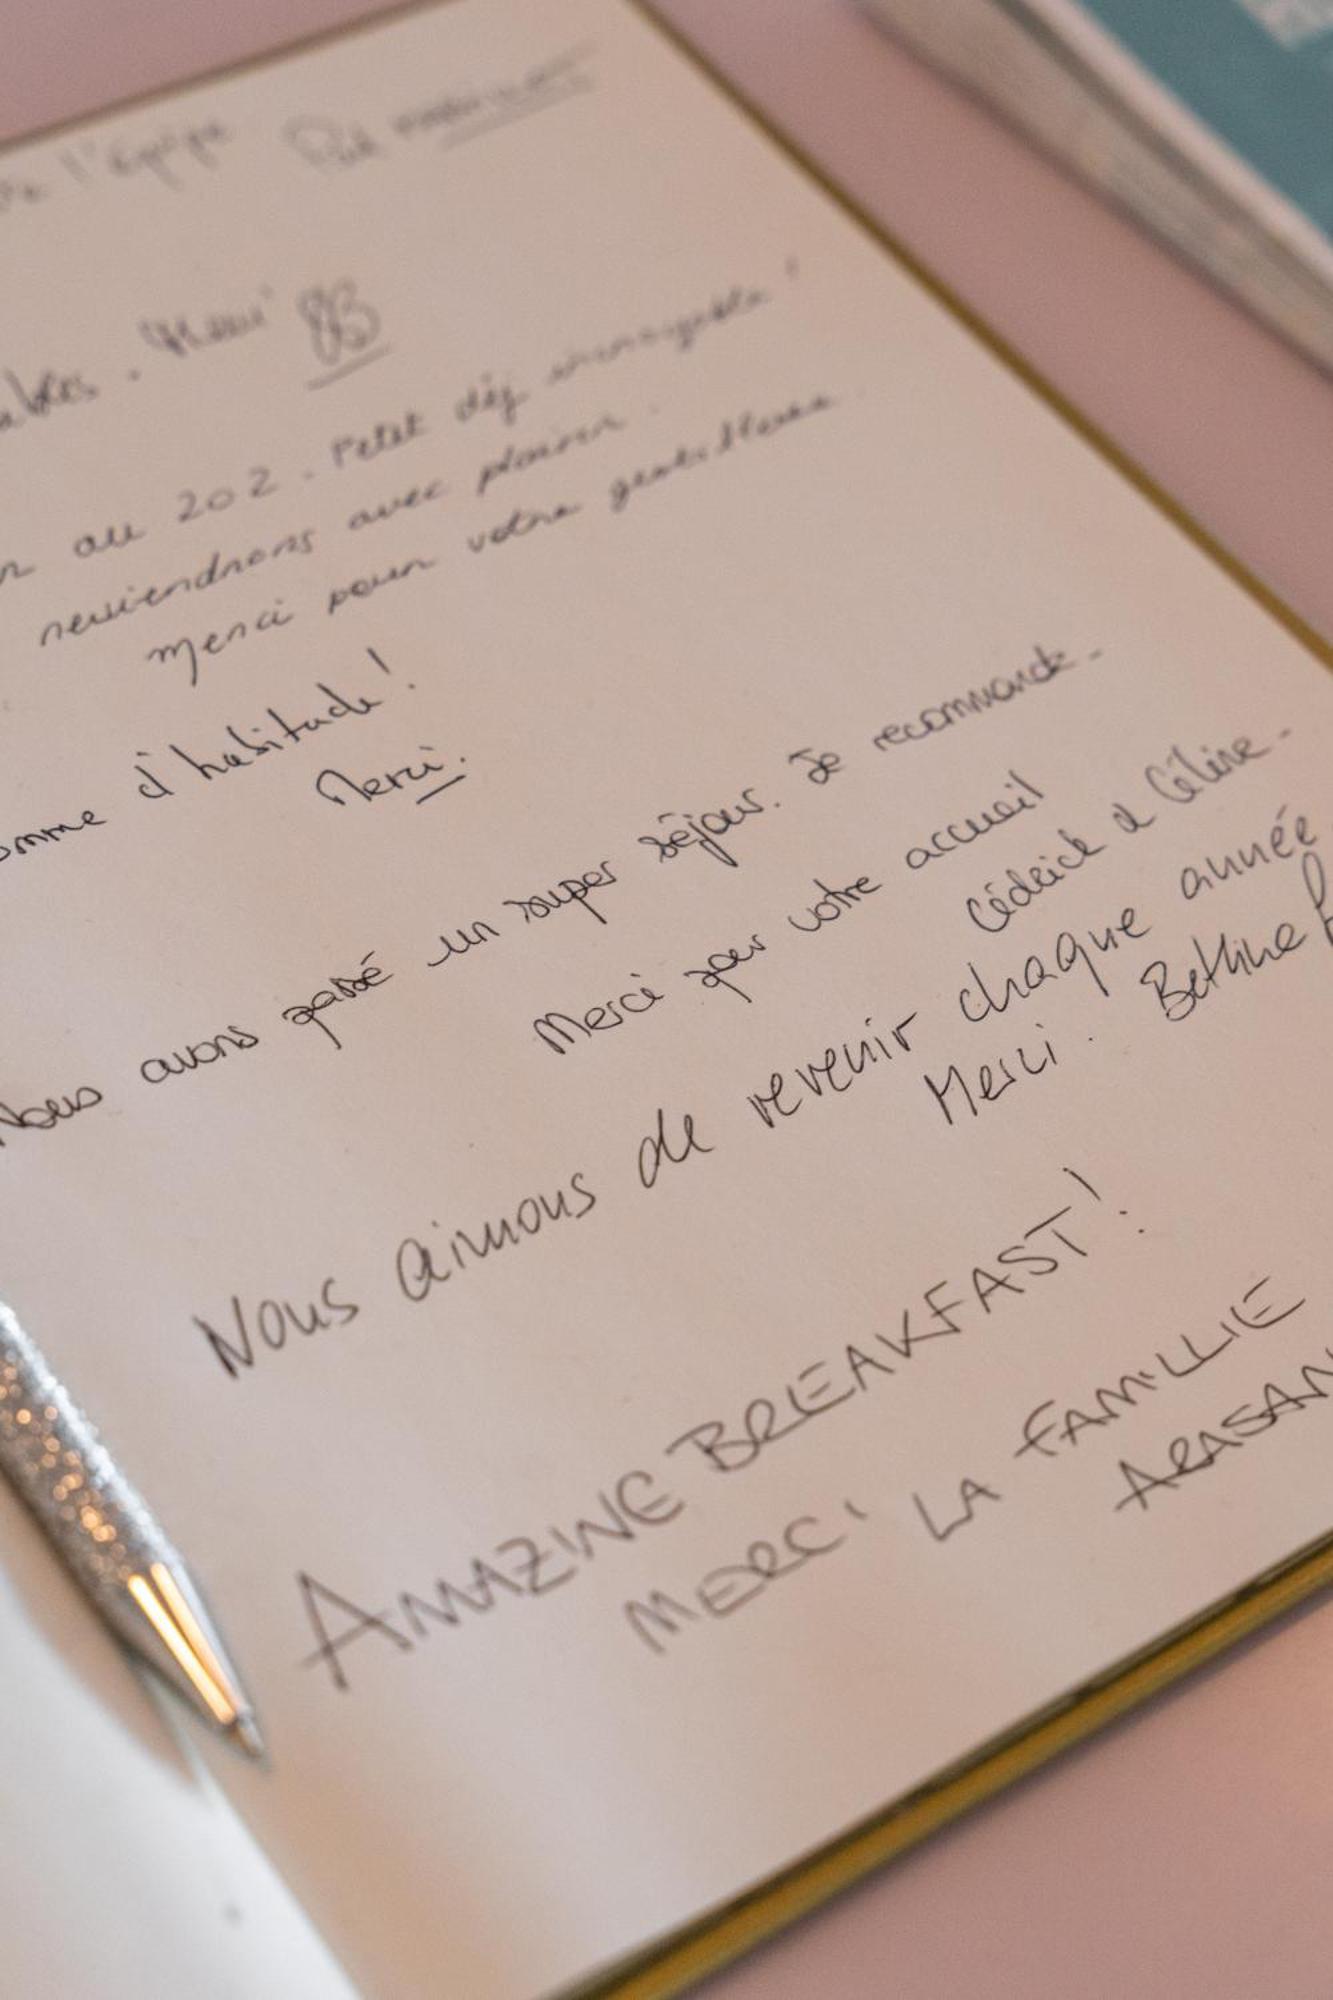 l'équipe
Merci
au 202. Petit déj incroyable!
reviendrons avec plaisir.
merci pour votre gentillesse.
d'habitude!
Merci.
Nous avons passé un super séjour. Je recommande.
Merci pour votre accueil
Cédrick & Céline.
Nous aimons de revenir chaque année
Merci. Bettina
AMAZING BREAKFAST!
MERCI LA FAMILLIE